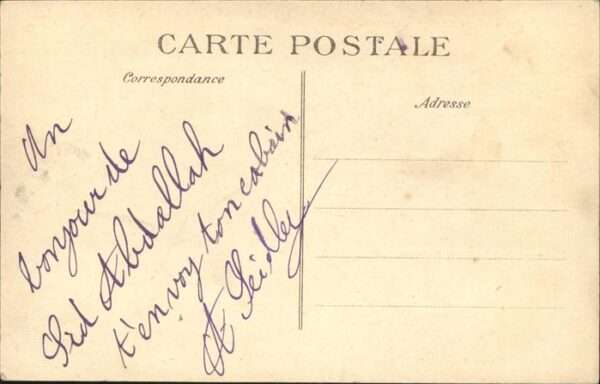 CARTE POSTALE
Correspondance
Adresse
Un
bonjour de
Sid Abdallah
t'envoy ton cobain
A Seidler